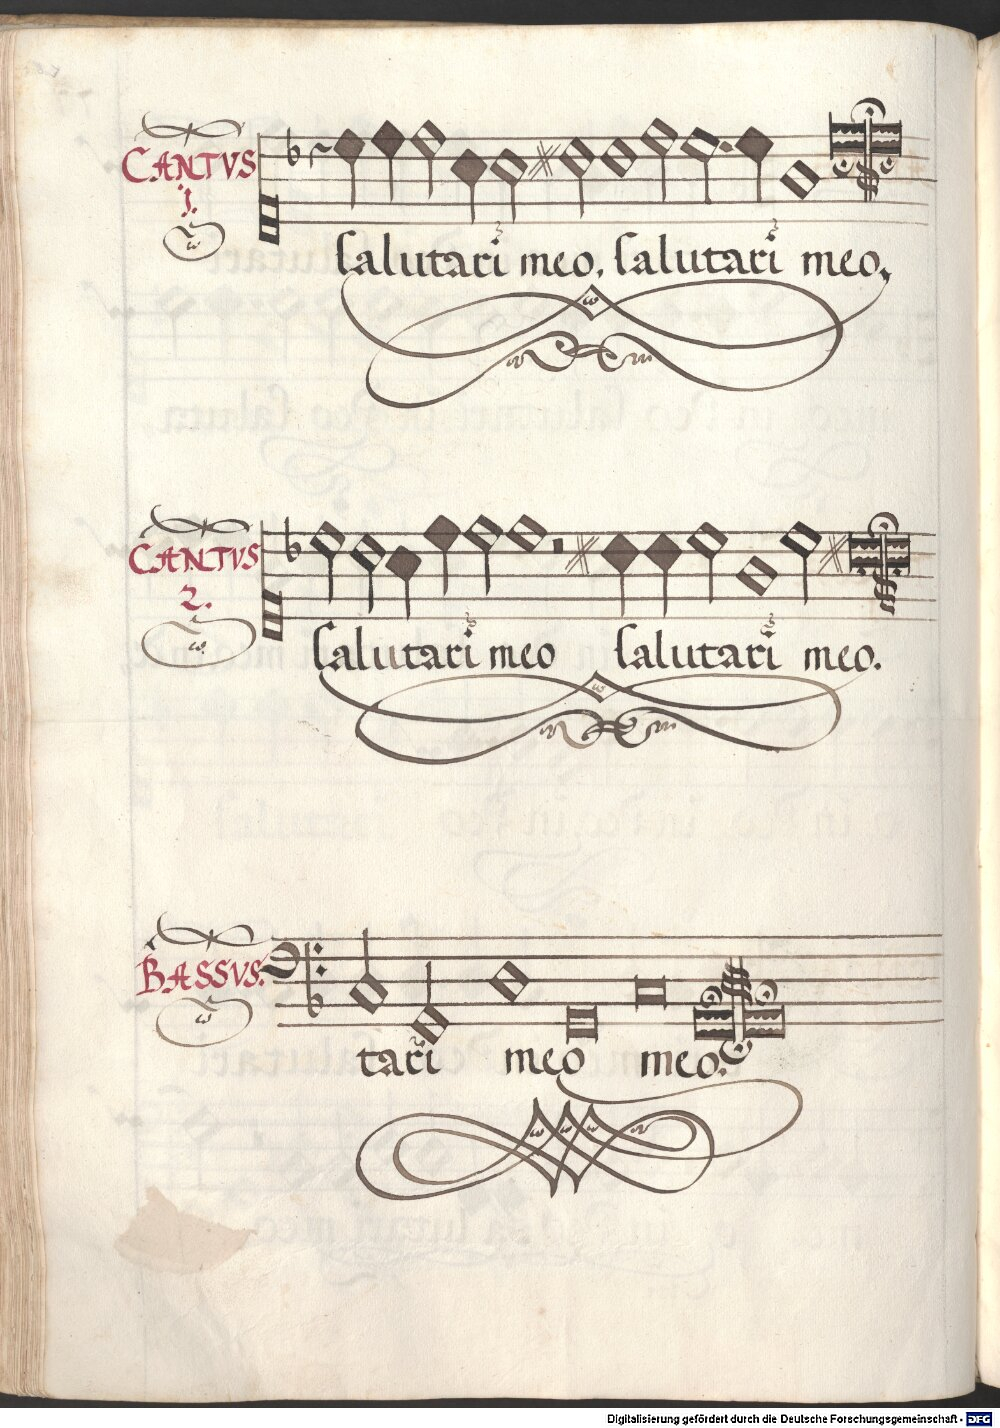 CANTVS
1.
salutari meo, salutari meo,
CANTVS
2.
salutari meo salutari meo.
BASSVS.
tari meo meo.
Digitalisierung gefördert durch die Deutsche Forschungsgemeinschaft - DFG